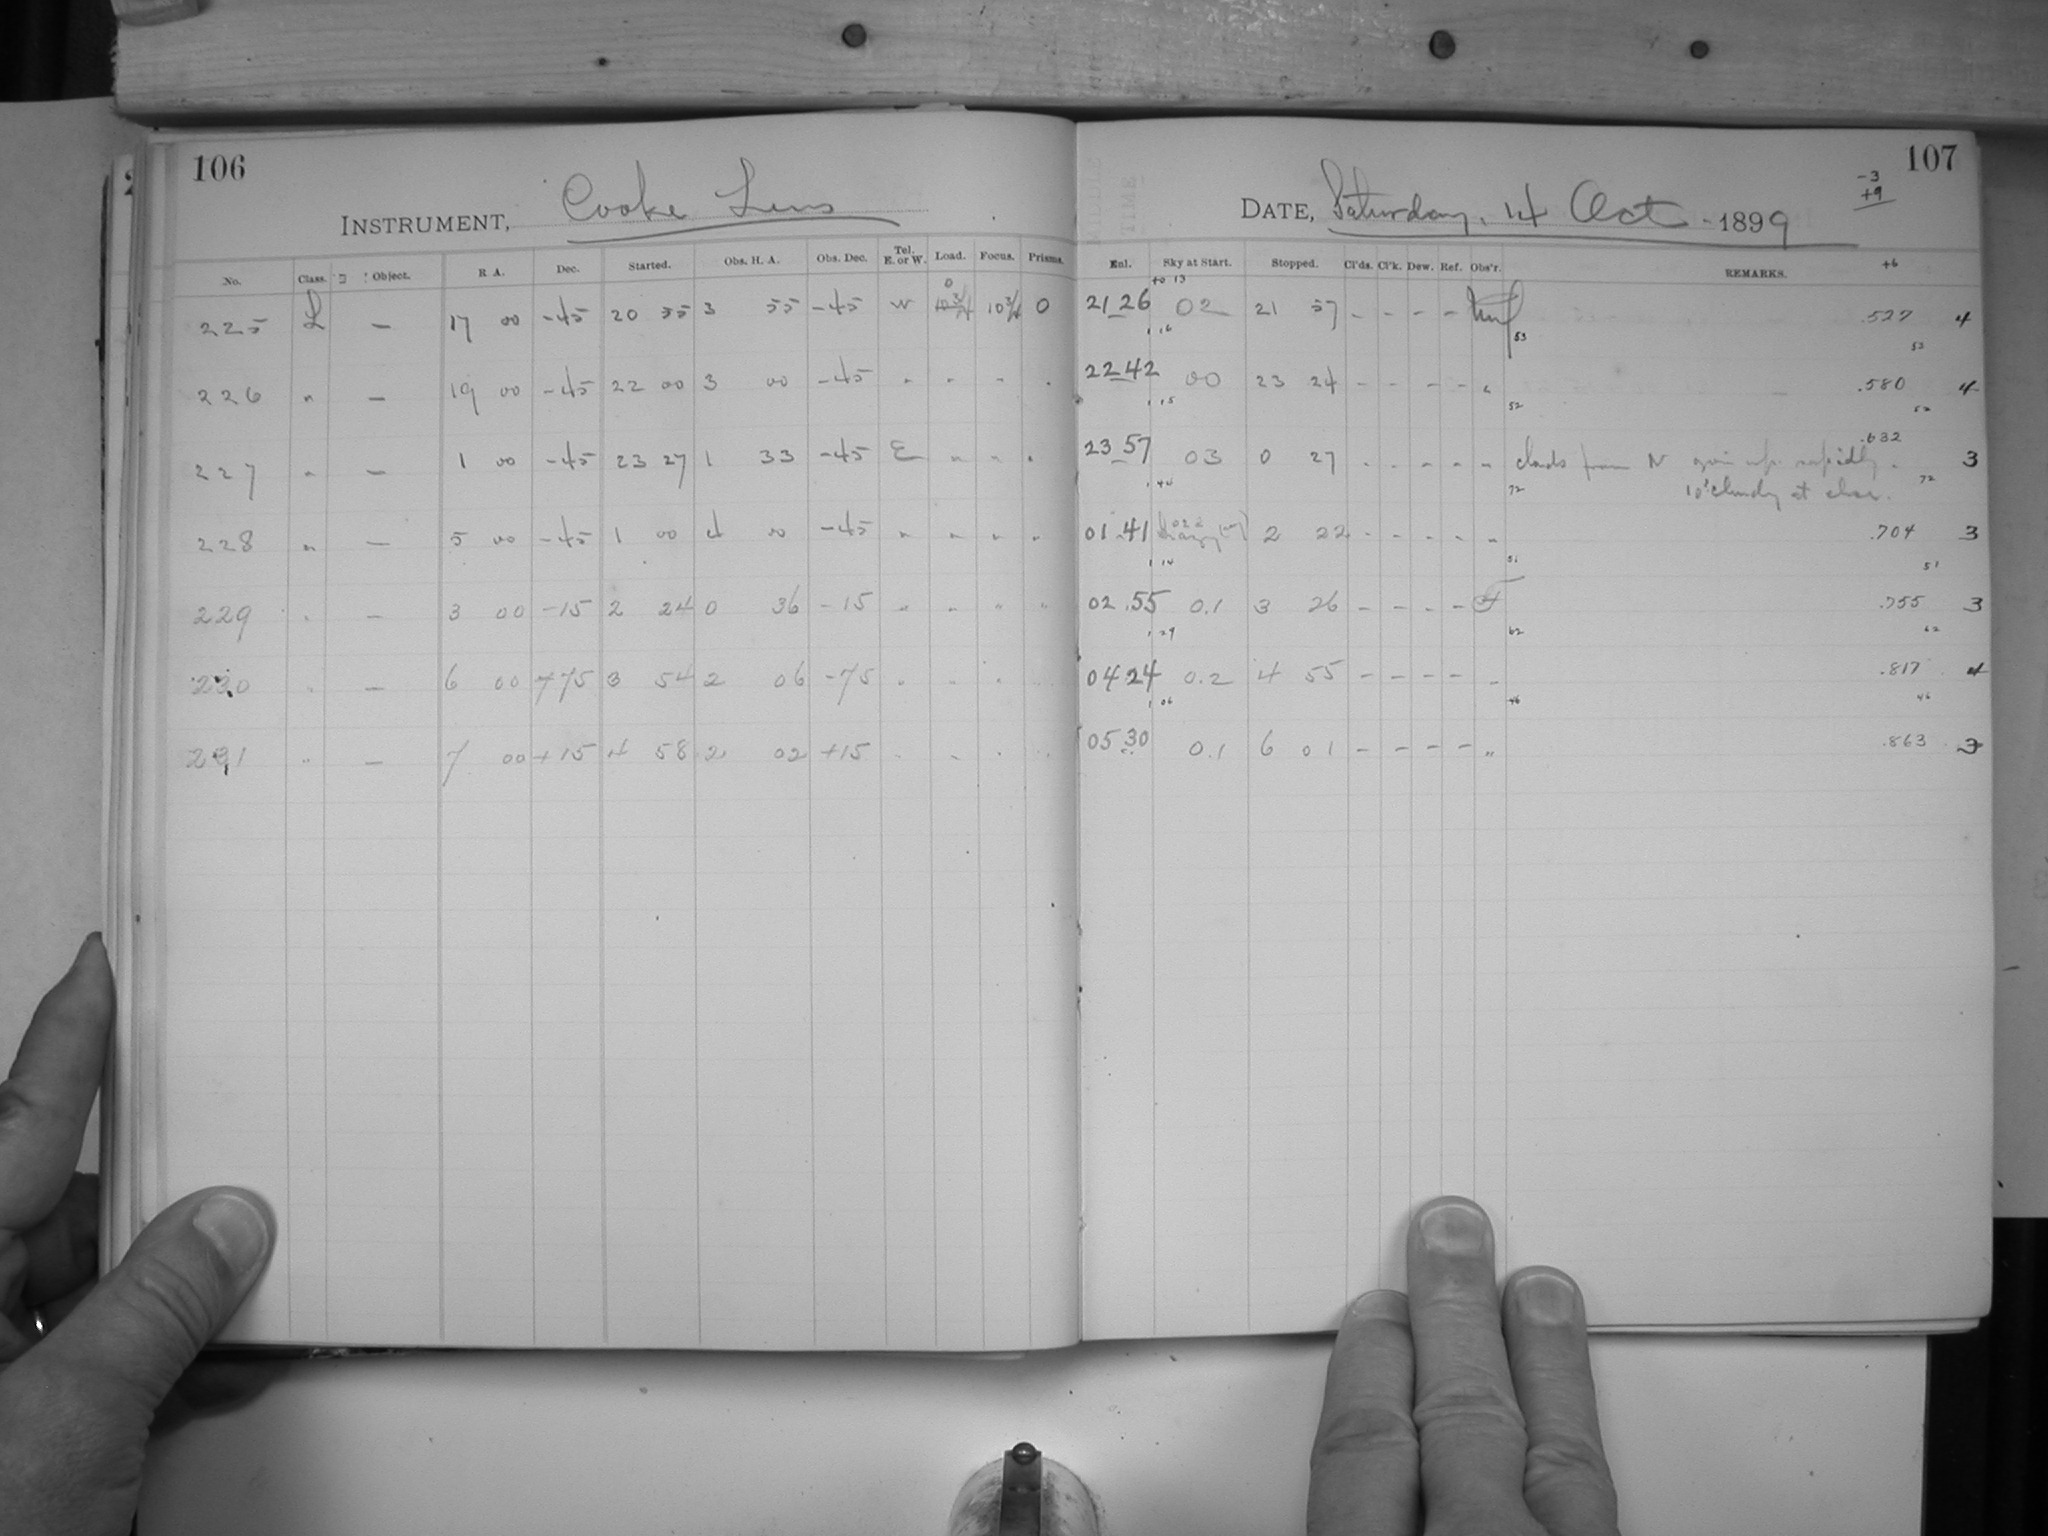 106
INSTRUMENT, Cooke Lens
No. Class. Object. R A. Dec. Started. Obs. H. A. Obs. Dec. Tel. E. or W. Load. Focus. Prisms.
225 L — 17 00 -45 20 55 3 55 -45 W 10 3/4 10 3/4 0
226 " — 19 00 -45 22 00 3 00 -45 " " " "
227 " — 1 00 -45 23 27 1 33 -45 E " " "
228 " — 5 00 -45 1 00 4 00 -45 " " " "
229 " — 3 00 -15 2 24 0 36 -15 " " " "
230 " — 6 00 +75 3 54 2 06 -75 " " " "
231 " — 7 00 +15 4 58 2 02 +15 " " " "
107
-3
+9
DATE, Saturday, 14 Oct - 1899
Enl. Sky at Start. Stopped. Cl'ds. Cl'k. Dew. Ref. Obs'r. REMARKS. +6
to 13
21 26 02 21 57 - - - - .527 4
1 16 53 53
22 42 00 23 24 - - - - " .580 4
1 15 52 52
23 57 03 0 27 - - - - " clouds from N rapidly. .632 3
1 44 72 10' cloudy at close. 72
01 41 2 22 - - - - " .704 3
1 14 51 51
02 55 0.1 3 26 - - - - .755 3
1 29 62 62
04 24 0.2 4 55 - - - - " .817 4
1 06 46 46
05 30 0.1 6 01 - - - - " .863 3